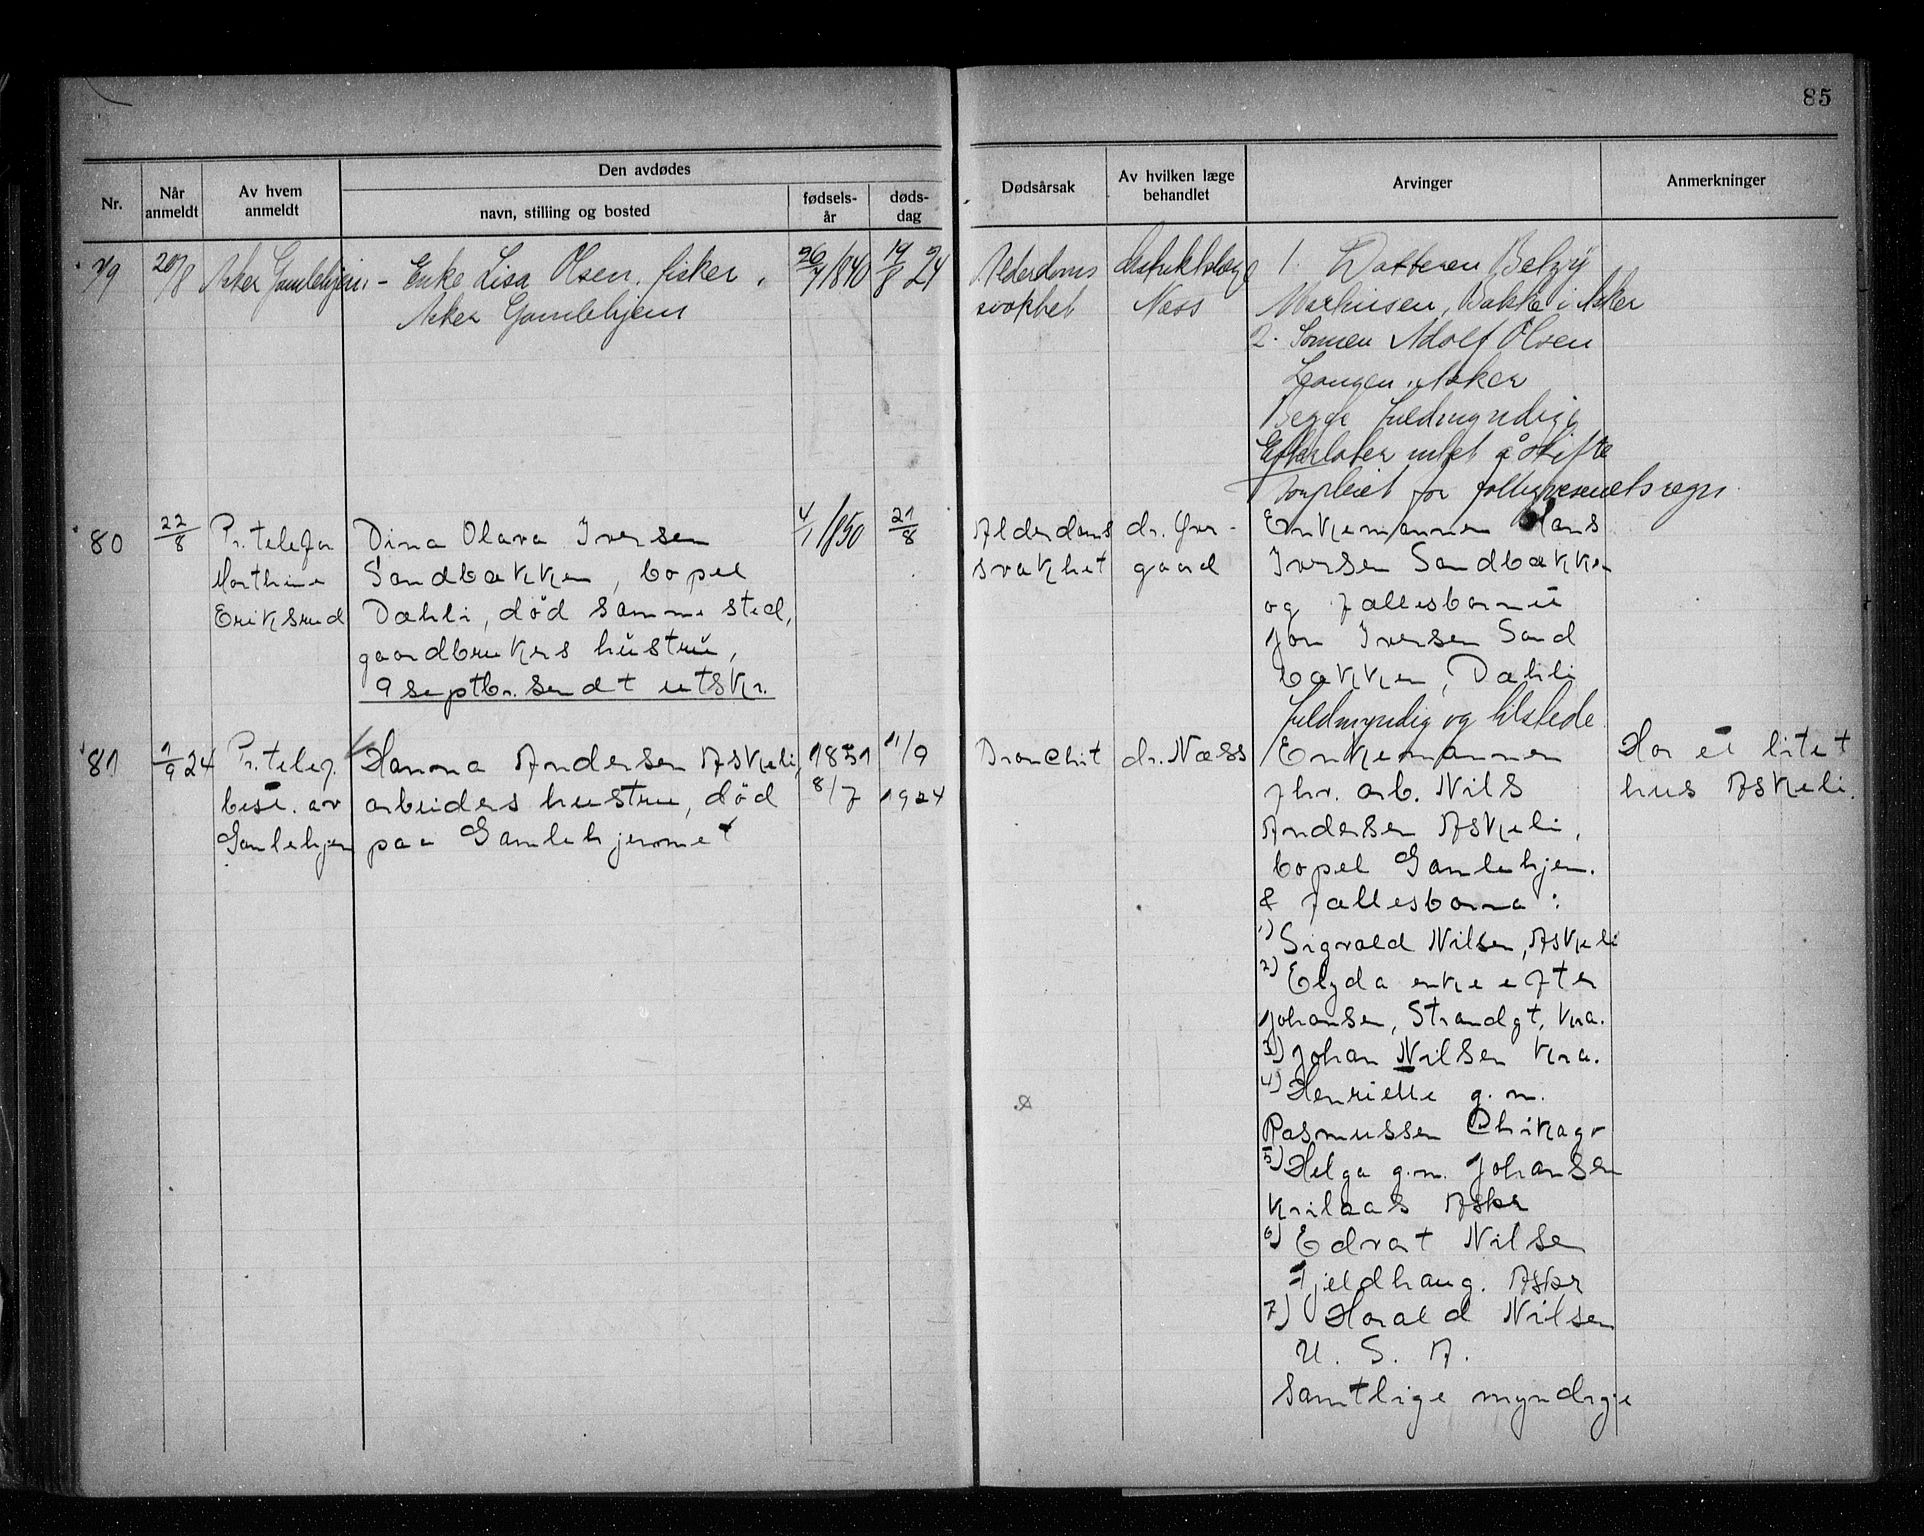 85
Nr.
Når anmeldt
Av hvem anmeldt
Den avdødes
navn, stilling og bosted
fødsels-
år
døds-
dag
Dødsårsak
Av hvilken læge
behandlet
Arvinger
Anmerkninger
79
20/8
Asker Gamlehjem
- Enke Lisa Olsen, fisker,
Asker Gamlehjem
26/4 1840
19/8 24
Alderdoms
svakhet
distriktslæge
Næss
1. Datteren Betzy
Markusen, Bakke i Asker
2. Sønnen Adolf Olsen
Leangen, Asker
Begge fuldmyndige
Efterlater intet å skifte
forpleiet for
80
22/8
Pr. telefon
Marthine
Eriksrud
Dina Olava Iversen
Sandbakken, bopel
Dæhli, død samme sted,
gaardbrukers hustru,
9 septbr. sendt utskr.
4/1 1850
21/8
Alderdoms
svakhet
dr. Gver-
gaard
Enkemannen Hans
Iversen Sandbakken
og fællesbarnet
Jon Iversen Sand
bakken, Dæhli
fuldmyndig og tilstede
81
1/9 24
Pr. telef.
best. av
Gamlehjem
Hanna Andersen Askeli,
arbeiders hustru, død
paa Gamlehjemmet
1851
8/7
1/9
1924
Bronchit
dr. Næss
Enkemannen
fhv. arb. Nils
Andersen Askeli,
bopel Gamlehjem.
& fællesbarna:
1) Sigvald Nilsen, Askeli
2) Elyda enke efter
Johansen, Strandgt, Kra.
3) Johan Nilsen Kra.
4) Henriette g.m.
Rasmussen Chikago
5) Helga g.m. Johansen
Askr
6) Edvart Nilsen
Fjeldhaug. Askr
7) Harald Nilsen
U. S. A.
samtlige myndige
Har et litet
hus Askeli.